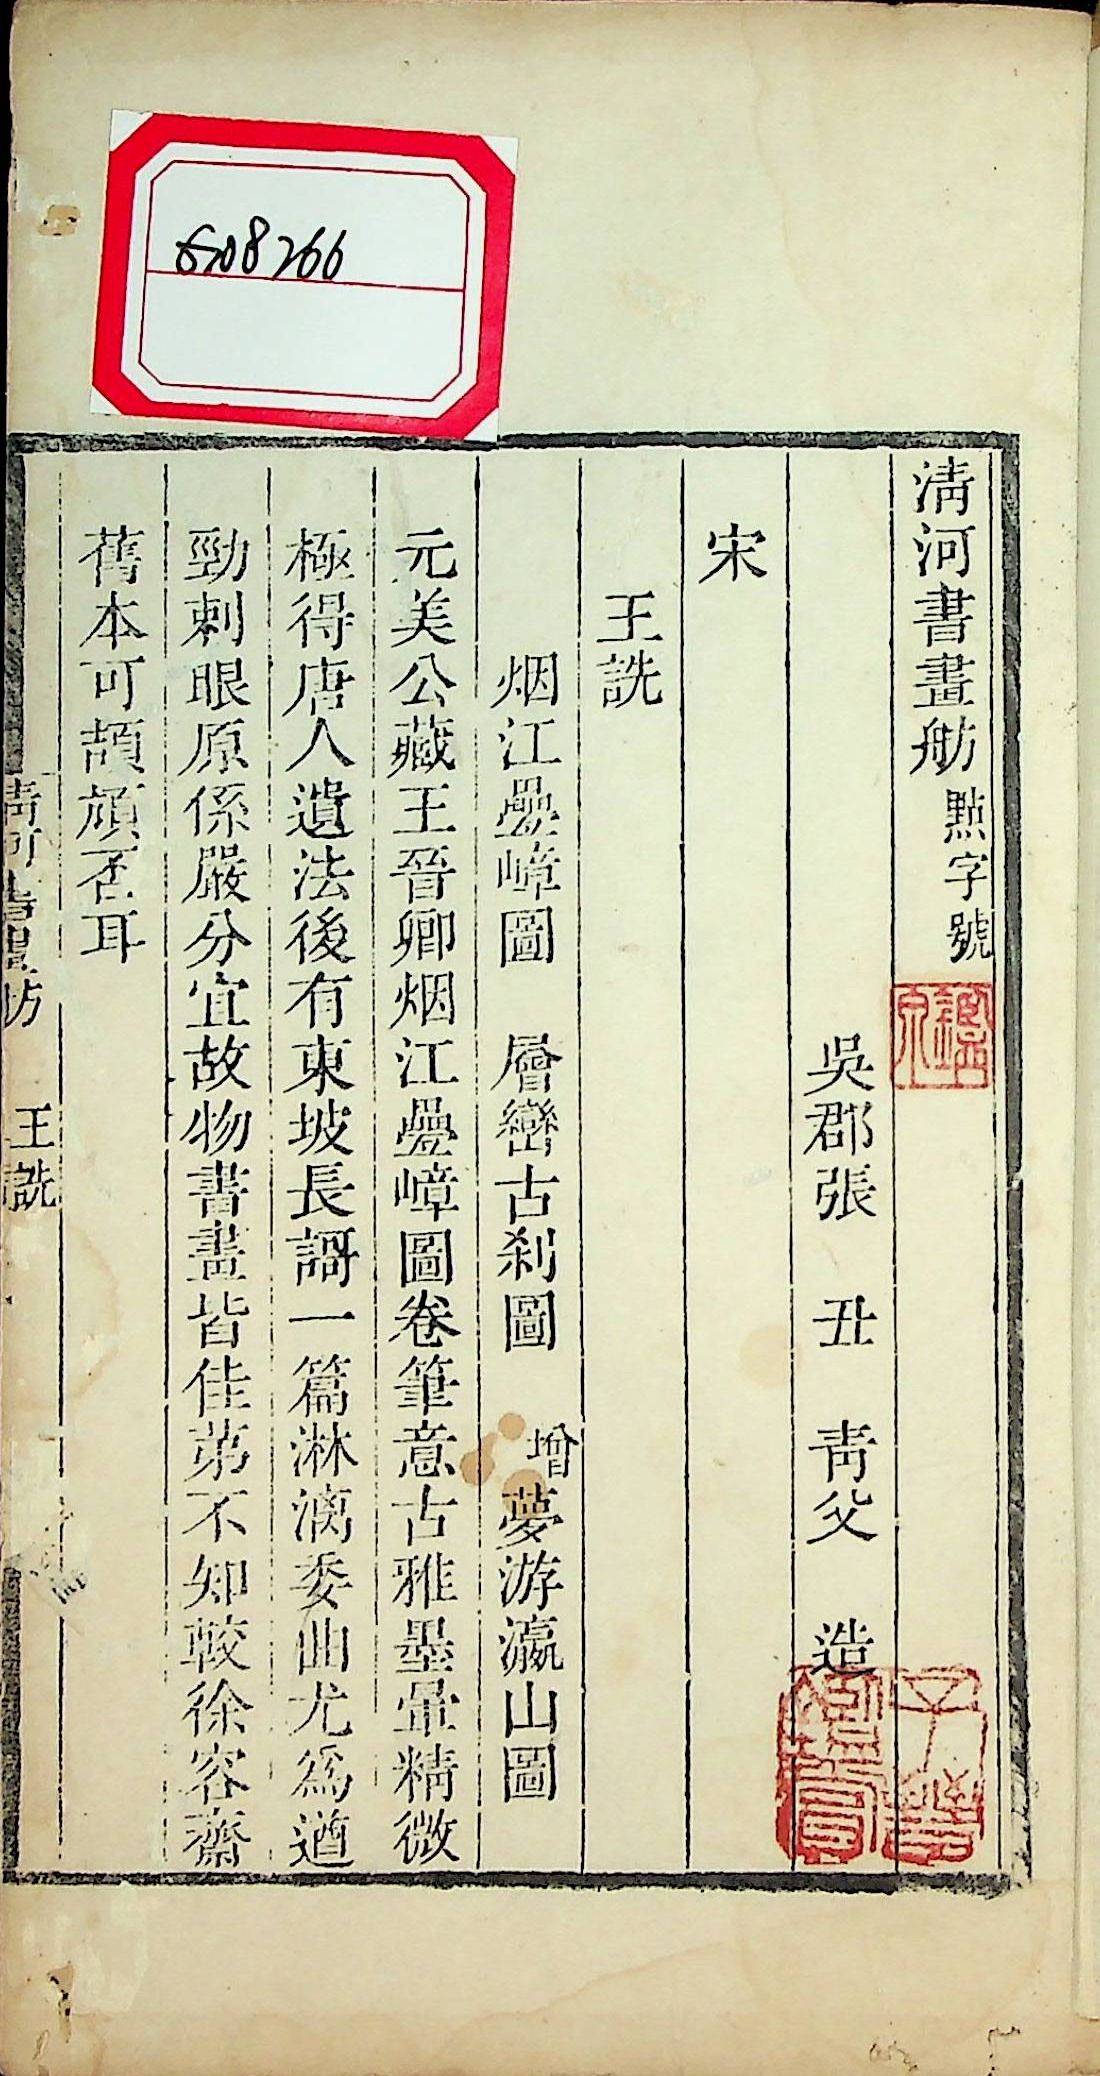 清河書畫舫 點字號
吳郡張 丑 青父 造
宋
王詵
烟江疊嶂圖 層巒古刹圖 增夢游瀛山圖
元美公藏王晉卿烟江疊嶂圖卷筆意古雅墨暈精微
極得唐人遺法後有東坡長謌一篇淋漓委曲尤爲遒
勁刺眼原係嚴分宜故物書畫皆佳第不知較徐容齋
舊本可頡頏否耳
清河書畫舫 王詵